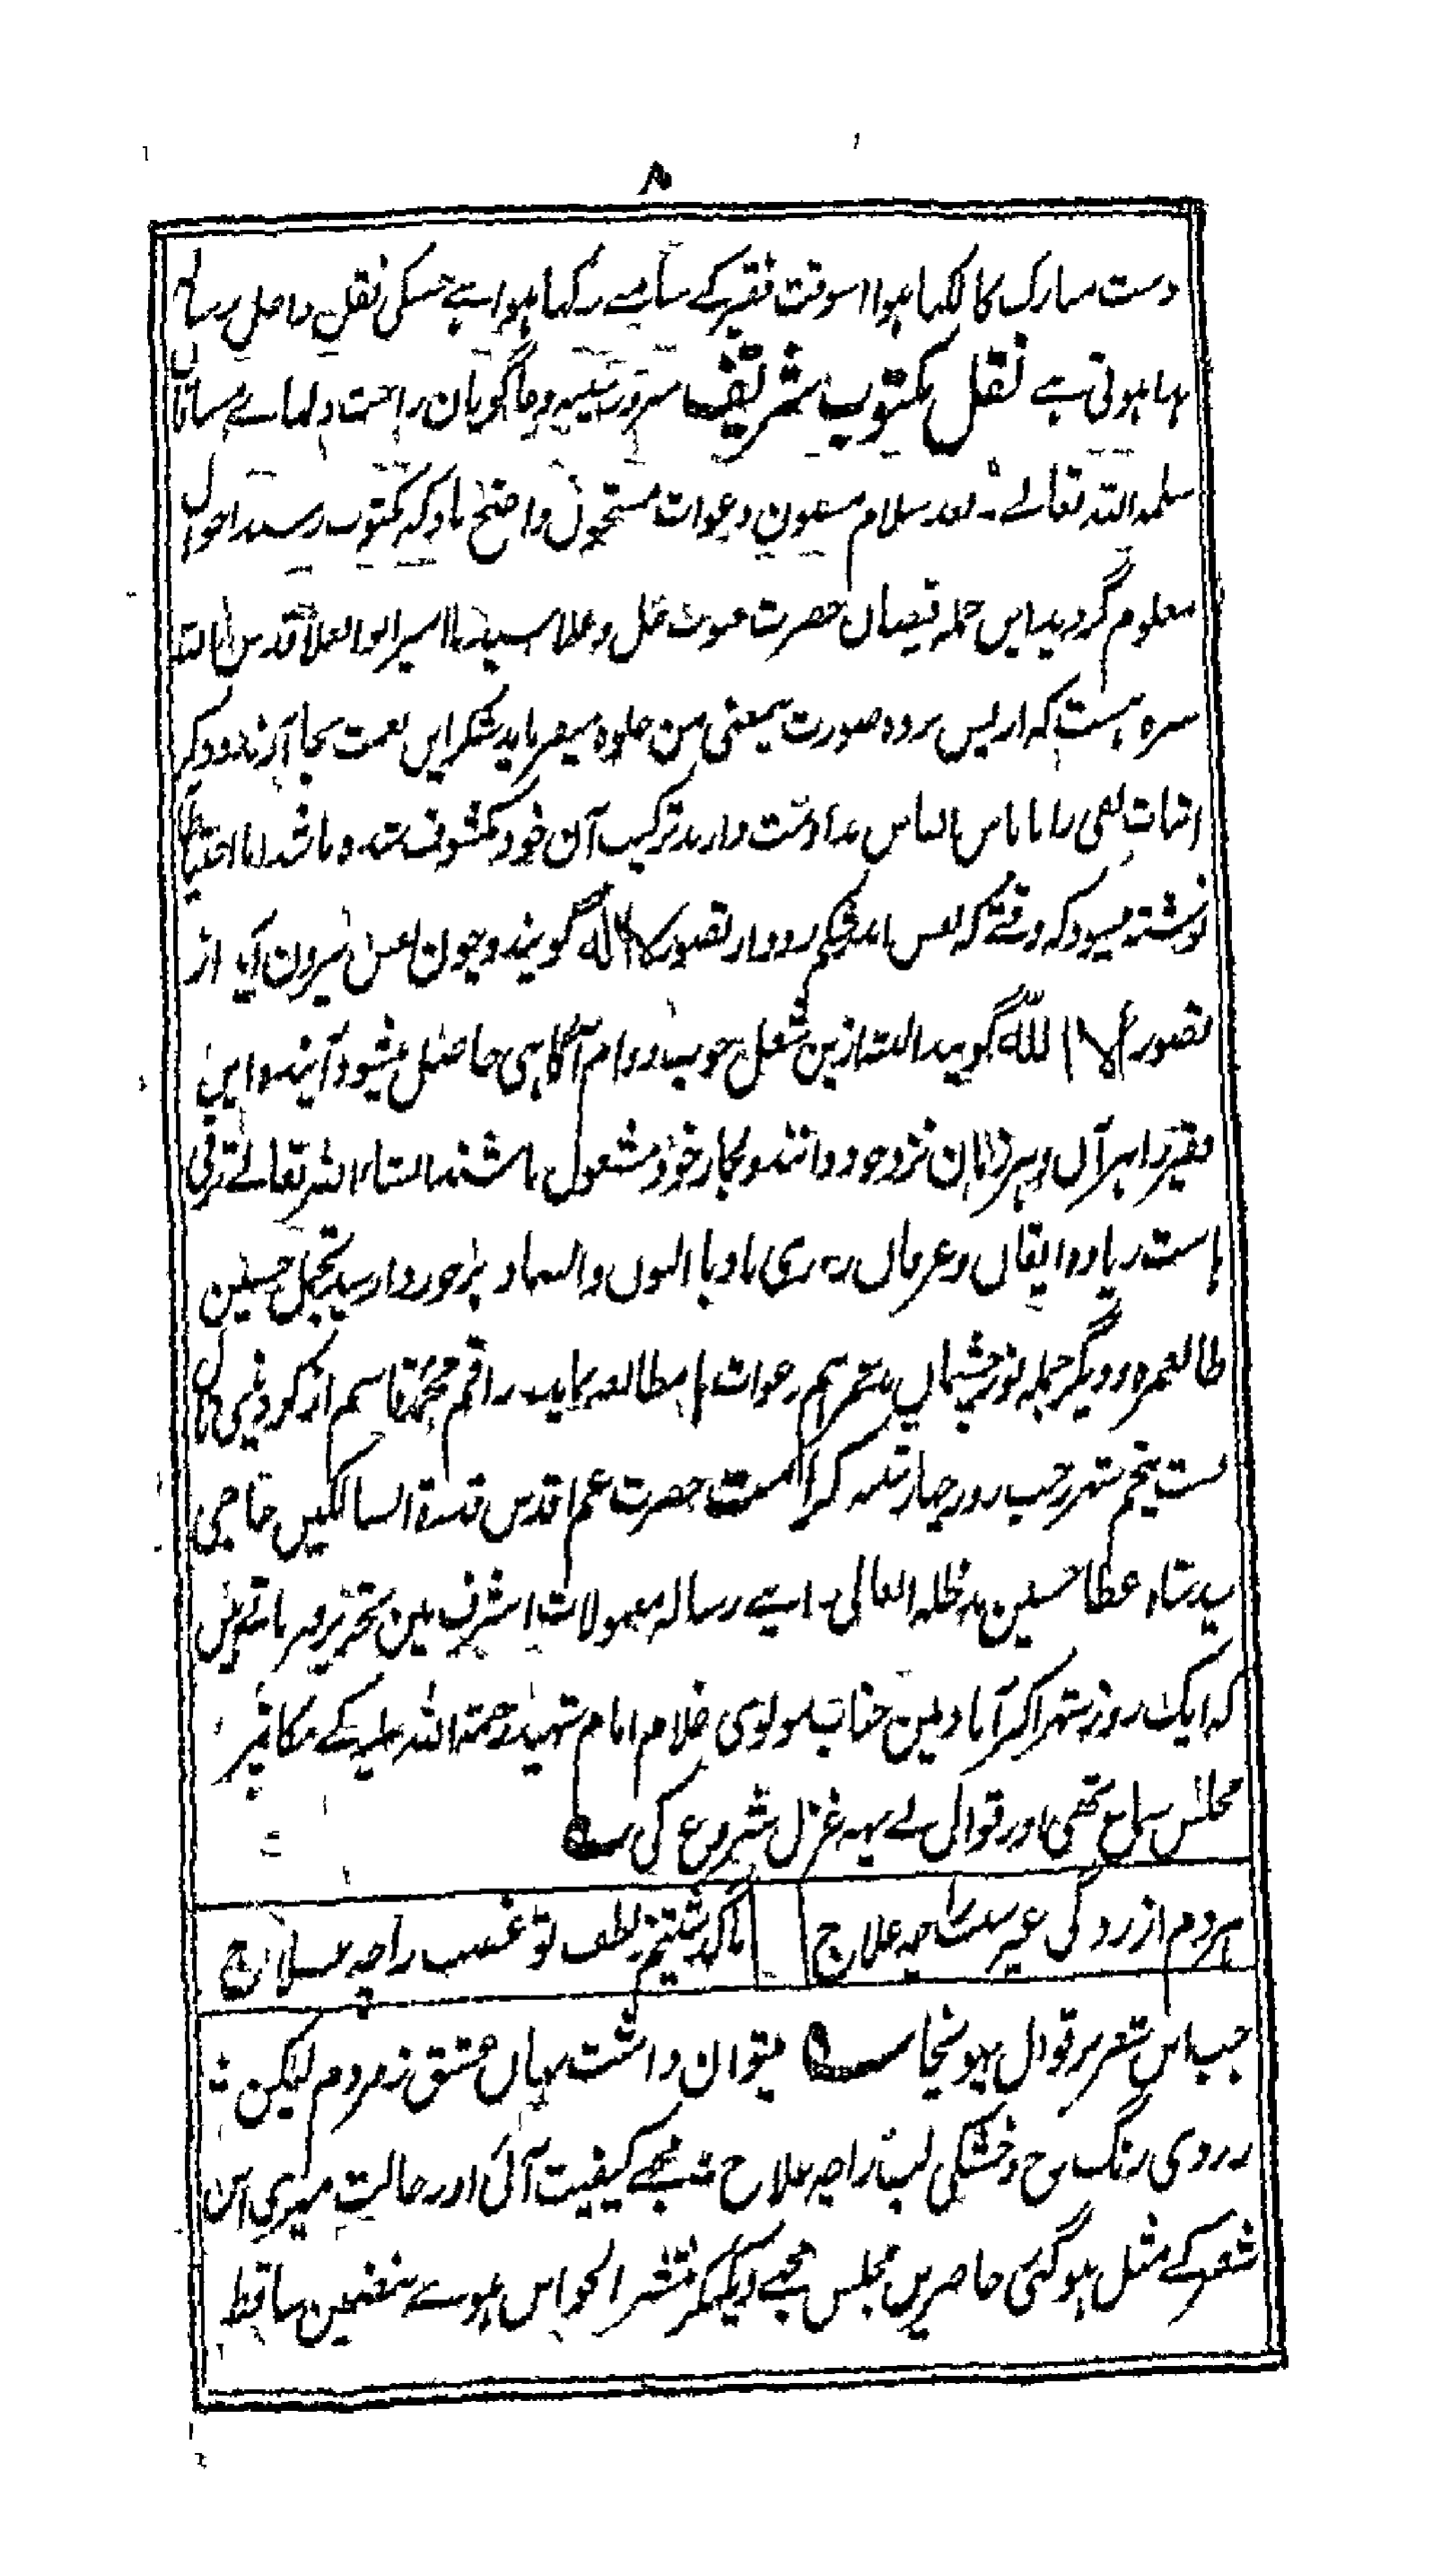 ۸
دست مبارک کا لکھا ہوا اسوقت فقیر کے سامنے رکہا ہوا ہے جسکی نقل داخل رسالہ
ہذا ہوتی ہے نقل مکتوب شریف سرور سینہ وجاگویان راحت دلہائے
سلمہ اللہ تعالے۔ بعد سلام مسنون و دعوات مشحون واضح باد کہ مکتوب رسید احوال
معلوم گردید این جملہ فیضان حضرت غوث سیدنا امیر ابوالعلا قدس اللہ
سرہ ہست کہ از پس پردہ صورت بمعنی من جلوہ میفرماید شکر این نعمت بجا آرند و ذکر
اثبات نفی را با پاس انفاس مداومت دارند ترکیب آن خود مکشوف شدہ باشد اما احتیاطاً
نوشتہ میشود کہ وقتے کہ نفس اندر شکم رود از تصور لا الہ گویند و چون نفس بیرون آید از
تصور الا اللہ گویند البتہ ازین شغل خوب دوام آگاہی حاصل میشود آیندہ این
فقیر را ہر آن و ہر زمان نزد خود دانند و بکار خود مشغول باشند انشاء اللہ تعالے ترقی
ہاست زیادہ ایقان و عرفان روزی باد بالنون والصاد برخوردار سید تجمل حسین
طالعمرہ و دیگر جملہ نورچشمان دعوات مطالعہ نمایند راقم محمد قاسم از
بست پنجم شہر رجب روز چارشنبہ کرامت حضرت عم اقدس قدوۃ السالکین حاجی
سید شاہ عطا حسین مدظلہ العالی۔ اپنے رسالہ معمولات اشرف مین تحریر فرماتے ہین
کہ ایک روز شہر اکبرآباد مین جناب مولوی غلام امام شہید رحمۃ اللہ علیہ کے مکانپر
مجلس سماع تھی اور قوال نے یہہ غزل شروع کی
ہردم آزردگی غیر سبب را چہ علاج ما گذشتیم ز لطف تو غضب را چہ علاج
جب اس شعر پر قوال پہونچا میتوان داشت نہان عشق ز مردم لیکن
زردی رنگ رخ و خشکی لب را چہ علاج مجھے کیفیت آئی اور حالت میری اس
شعر کے مثل ہوگئی حاضرین مجلس مجھے دیکھکر منتشر الحواس ہوے نبضین ساقط